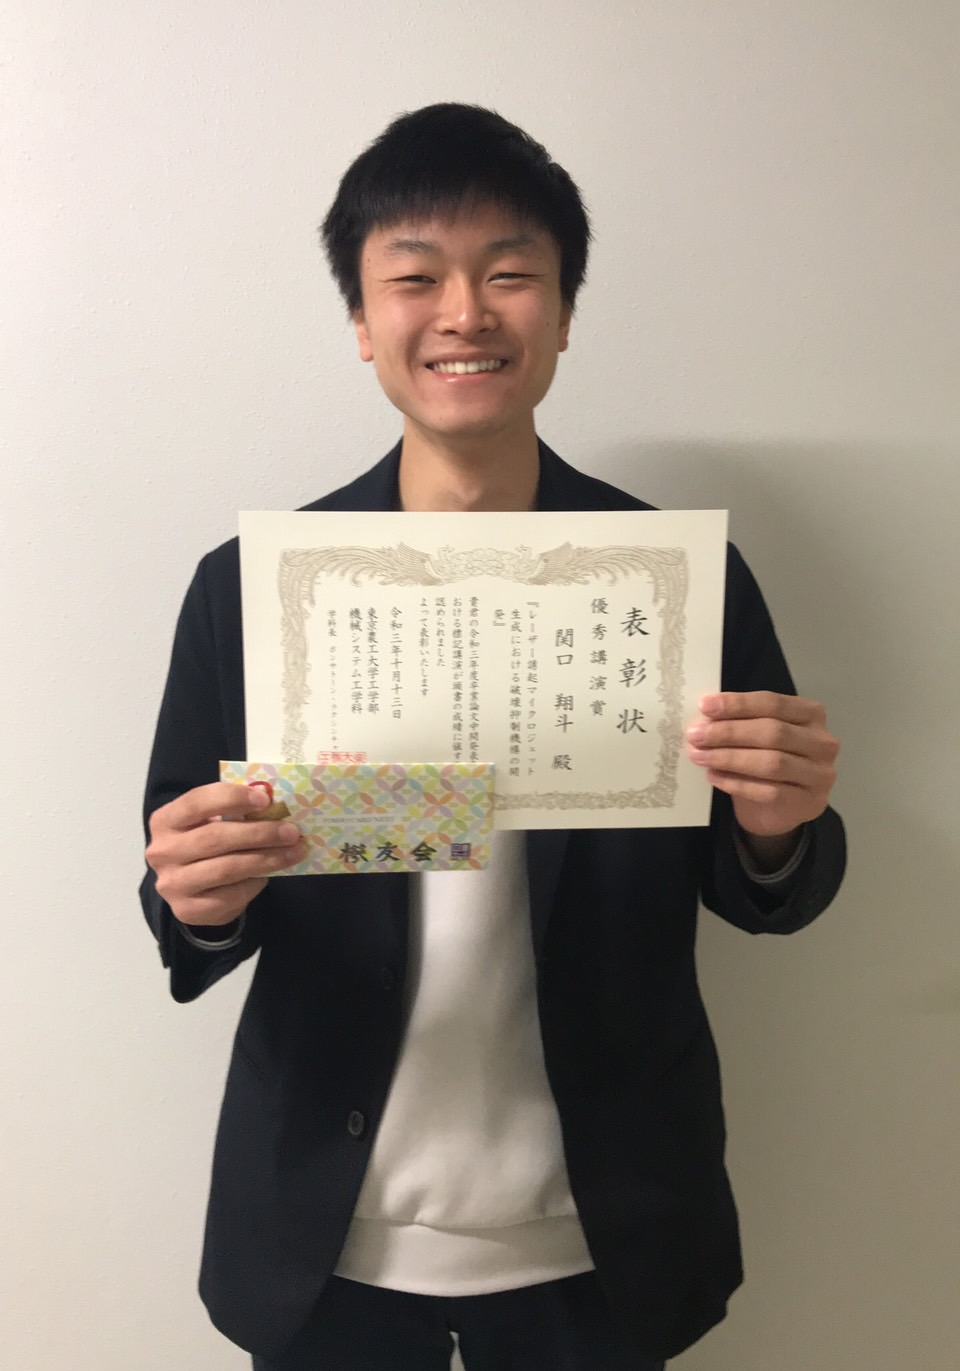 表彰状
優秀講演賞
関口 翔斗 殿
『レーザー誘起マイクロジェット
生成における破壊抑制機構の開
発』
貴君の令和三年度卒業論文中間発表
おける標記講演が頭書の成績に値す
認められました
よって表彰いたします
令和三年十月十三日
東京農工大学工学部
機械システム工学科
学科長 ポンサトーン・ラクシンチャ
櫻友会